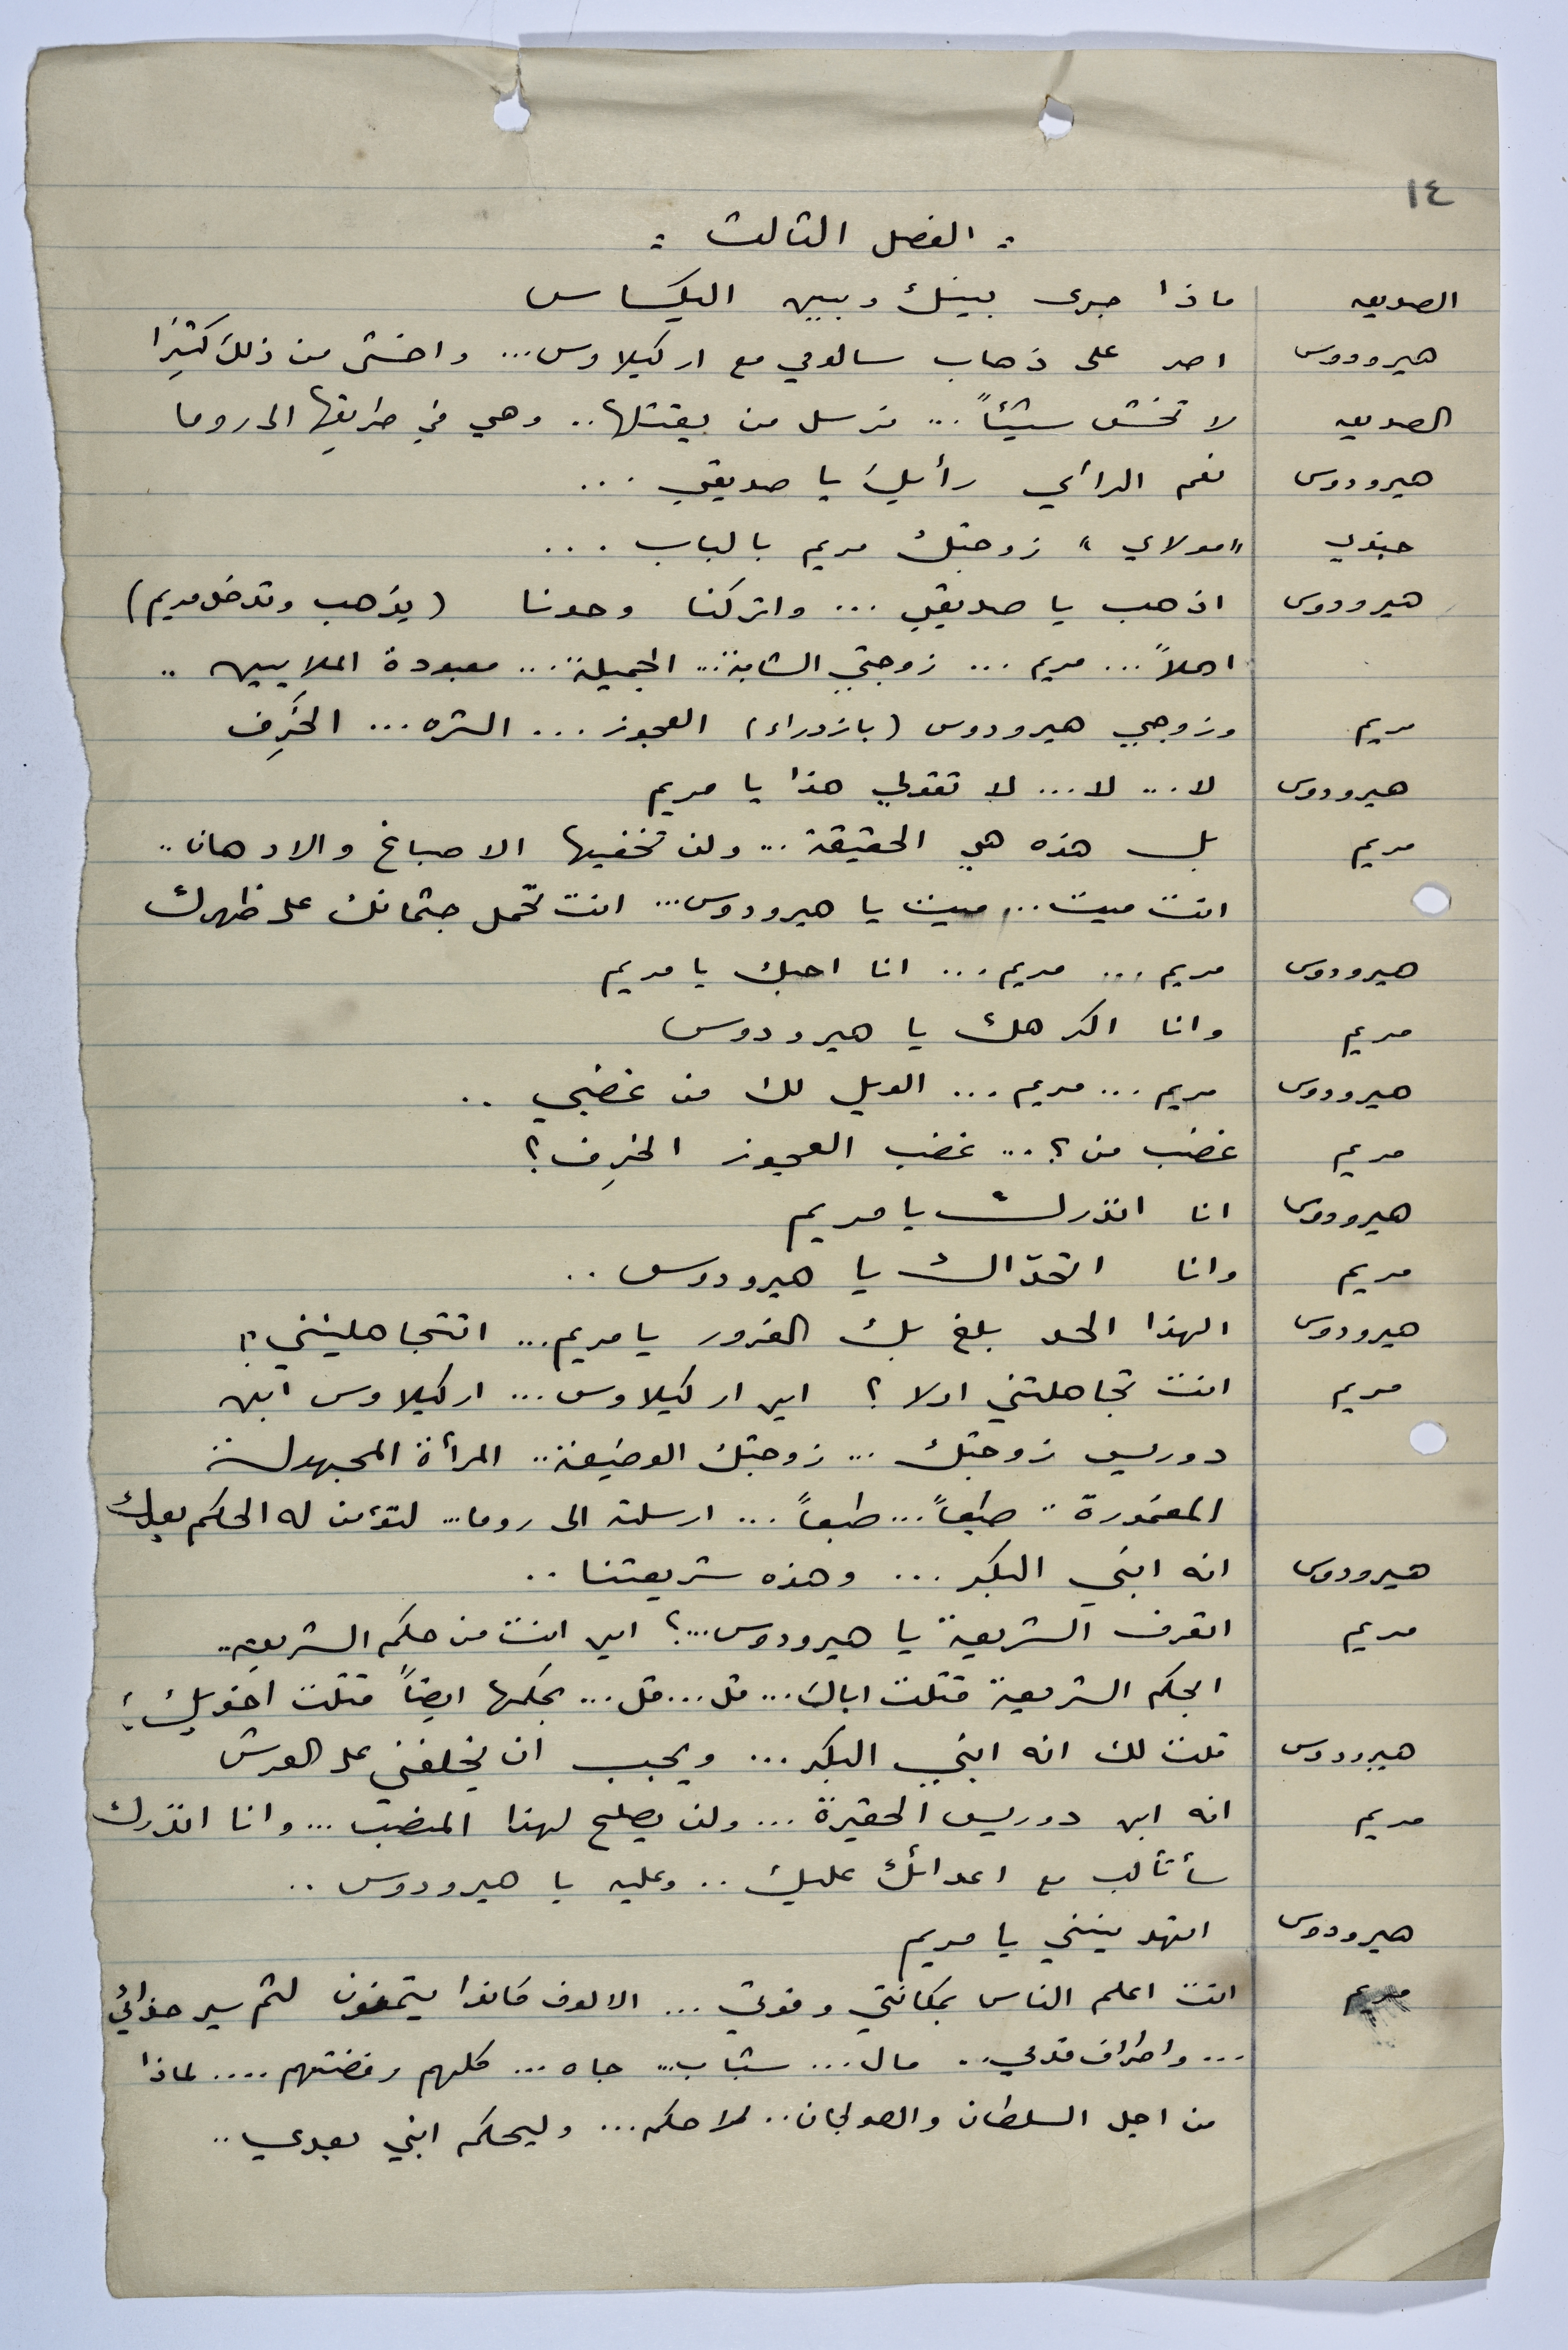 ١٤
: الفصل الثالث :
الصديق ماذا جرى بينك وبين اليكساس
هيرودوس اصر على ذهاب سالومي مع اركيلاوس... واخشى من ذلك كثيرًا
الصديق لا تخش شيئاً... نرسل من يقتلها.. وهي في طريقها الى روما
هيرودوس نعم الرأي رأيك يا صديقي ...
جندي "مولاي" زوجتك مريم بالباب ...
هيرودوس اذهب يا صديقي ... واتركنا وحدنا (يذهب وتدخل مريم)
اهلاً... مريم ... زوجتي الشابة... الجميلة... معبودة الملايين ..
مريم وزوجي هيرودوس (بازدراء) العجوز ... الشره ... الخَرِف
هيرودوس لا... لا... لا تقولي هذا يا مريم
مريم بل هذه هي الحقيقة... ولن تخفيها الاصباغ والادهان ..
انت ميت... ميت يا هيرودوس... انت تحمل جثمانك على ظهرك
هيرودوس مريم ... مريم ... انا احبك يا مريم
مريم وانا اكرهك يا هيرودوس
هيرودوس مريم ... مريم ... الويل لك من غضبي ..
مريم غضب من؟ ... غضب العجوز الخَرِف؟
هيرودوس انا انذرك يا مريم
مريم وانا اتحدّاك يا هيرودوس ..
هيرودوس الهذا الحد بلغ بك الغرور يا مريم... اتتجاهلينني؟!
مريم انت تجاهلتني اولا؟ اين اركيلاوس... اركيلاوس ابن
دوريس زوجتك ... زوجتك الوضيعة.. المرأة المجهولة
المغمورة .. طبعاً... طبعاً... ارسلته الى روما... لتؤمن له الحكم بعدك
هيرودوس انه ابني البكر ... وهذه شريعتنا ..
مريم اتعرف الشريعة يا هيرودوس...؟ اين انت من حكم الشريعة..
ابحكم الشريعة قتلت اباك... قل... قل... بحكمها ايضاً قتلت اخويك؟!
هيرودوس قلت لك انه ابني البكر ... ويجب ان يخلفني على العرش
مريم انه ابن دوريس الحقيرة ... ولن يصلح لهذا المنصب ... وانا انذرك
سأتألب مع اعدائك عليك .. وعليه يا هيرودوس ..
هيرودوس اتهددينني يا مريم
مريم انت اعلم الناس بمكانتي وقوتي ... الالوف كانوا يتمنون لثم سير حذائي
... واطراف قدمي.. مال ... شباب... جاه ... كلهم رفضتهم .... لماذا
من اجل السلطان والصولجان.. لاحكم ... وليحكم ابني بعدي ..